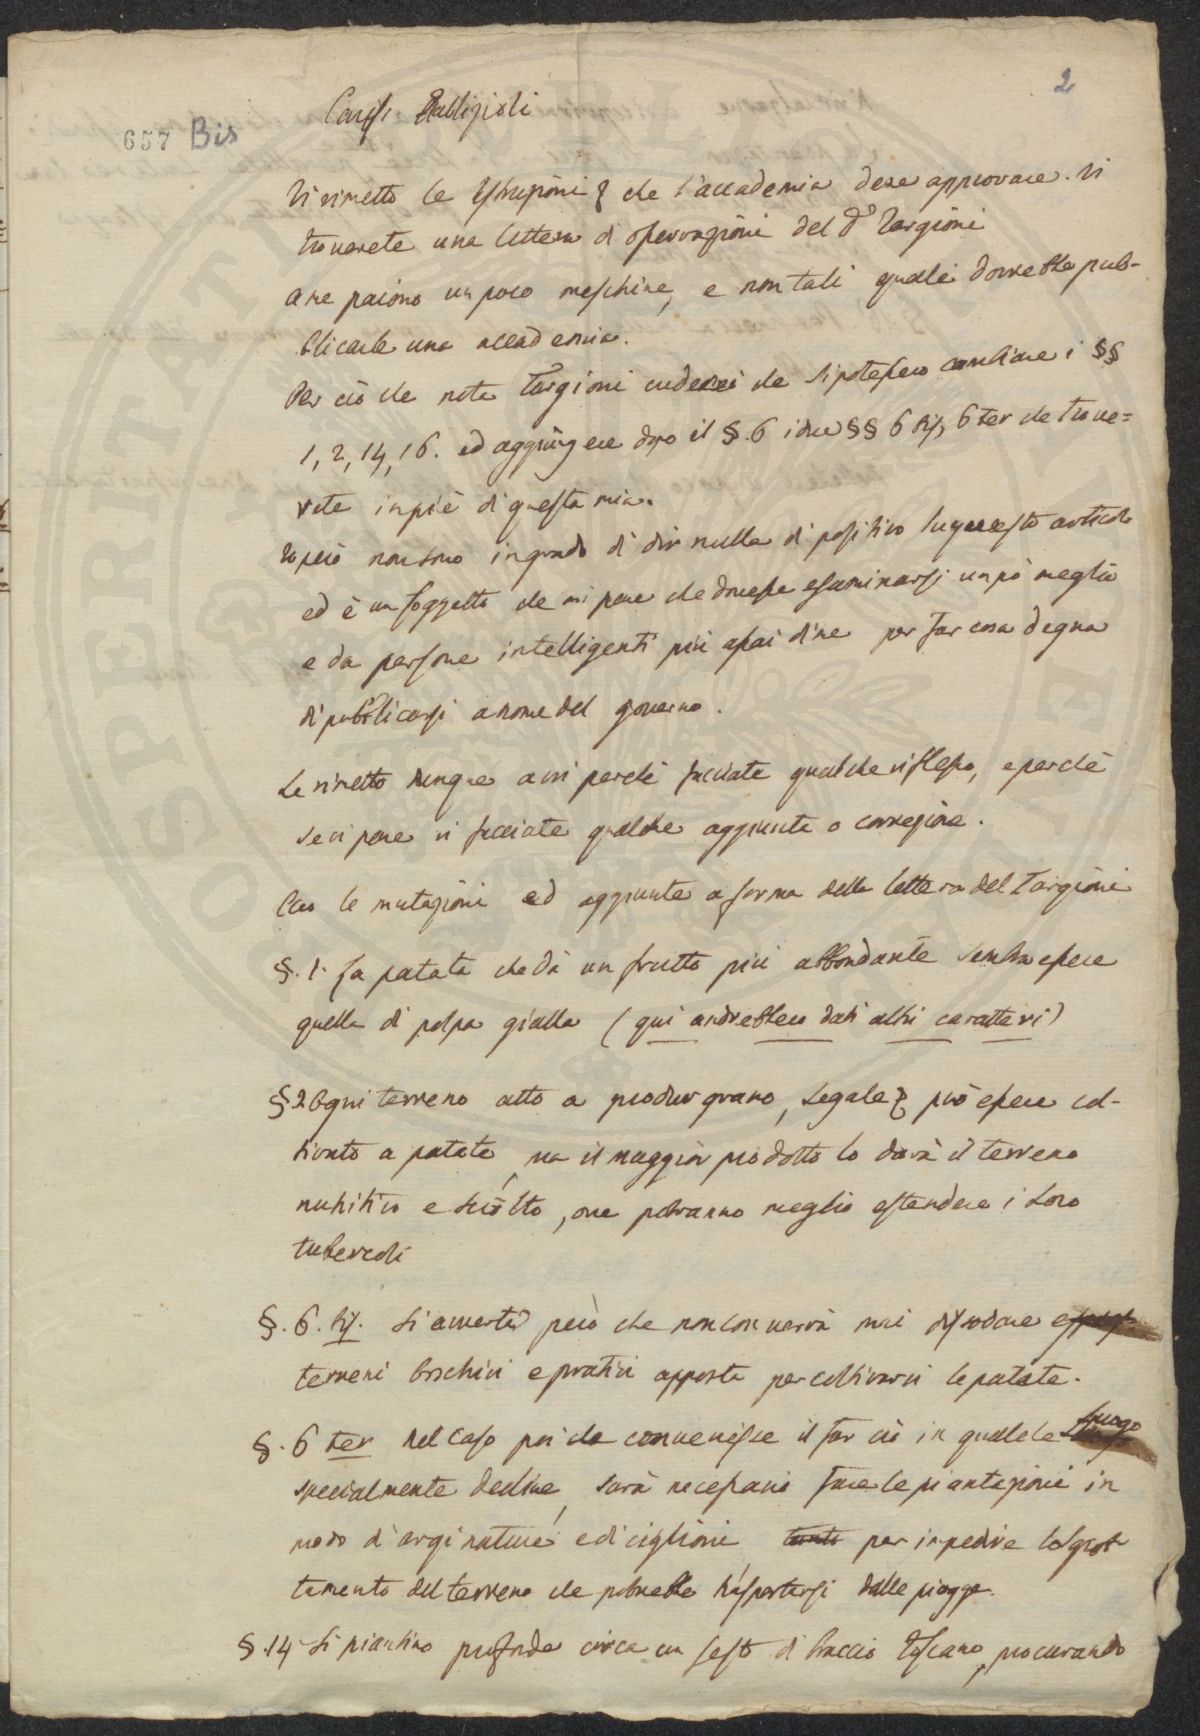 2
657 Bis
Cariss. Tabbigioli
Vi rimetto le Istruzioni che l'accademia deve approvare. Vi
troverete una lettera di osservazioni del Dr Targioni
a me paiono un poco meschine, e non tali quali dovrebbe pub-
blicarle una accademia.
Per ciò che nota Targioni crederei che si potessero cambiare i §§
1, 2, 14, 16. ed aggiungere dopo il §. 6 i due §§ 6 bis, 6 ter che trove=
rete in piè di questa mia.
Io però non sono in grado di dir nulla di positivo su questo articolo
ed è un soggetto che mi pare che dovesse esaminarsi un pò meglio
e da persone intelligenti più assai di me per far cosa degna
di pubblicarsi a nome del governo.
Le rimetto dunque a voi perchè facciate qualche riflesso, e perchè
se vi pare vi facciate qualche aggiunta o correzione.
Ecco le mutazioni ed aggiunte a forma della lettera del Targioni
§. 1. La patata che dà un frutto più abbondante sembra essere
quella di polpa gialla (qui andrebbero dati altri caratteri)
§ 2 Ogni terreno atto a produr grano, segale può essere col-
tivato a patate, ma il maggior prodotto lo darà il terreno
nutritivo e sciolto, ove potranno meglio estendere i loro
tubercoli
§. 6. bis. Si avverta però che non converrà mai dissodare
terreni boschivi e prativi apposta per coltivarvi le patate.
§. 6 ter Nel caso poi che convenisse il far ciò in qualche luogo
specialmente declive, sarà necessario fare le piantazioni in
modo d'arginature e di ciglioni tanto per impedire lo sgrot-
tamento del terreno che potrebbe trasportarsi dalle piogge.
§. 14 Si piantino profonde circa un sesto di braccio toscano, procurando